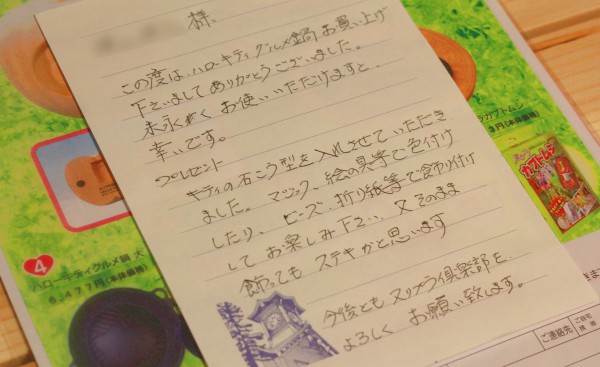 様
この度は、ハローキティグルメ鍋お買い上げ
下さいましてありがとうございました。
末永く お使いいただけますと、
幸いです。
プレゼント
キティの石こう型を入れさせていただき
ました。マジック、絵の具等で色付け
したり、ビーズ、折り紙等で飾り付け
してお楽しみ下さい、又そのまま
飾っても ステキかと思います
今後とも ヌリプラ倶楽部を
よろしく お願い致します。
4
ハローキティグルメ鍋 大
6,477円(本体価格)
カブトムシ
円(本体価格)
カブトムシ
ご連絡先
ご自宅
携帯